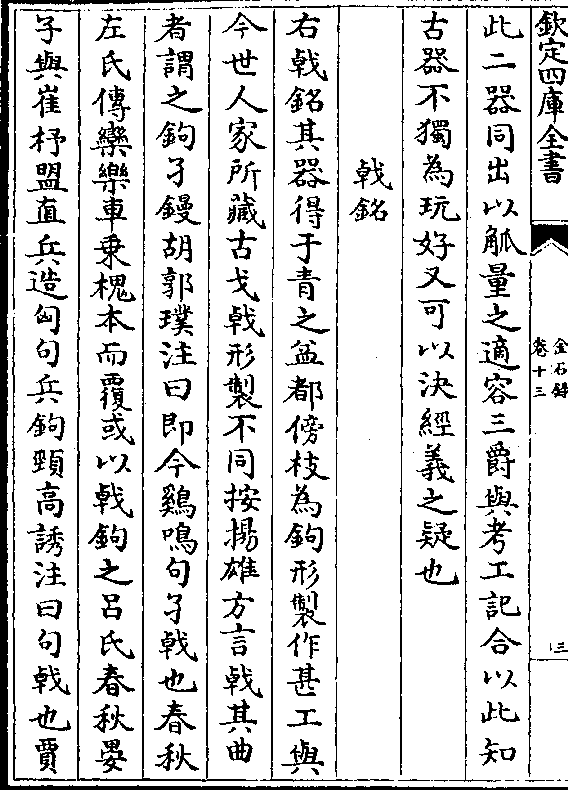 欽定四庫全書
金石錄
卷十三
三
此二器同出以觚量之適容三爵與考工記合以此知
古器不獨為玩好又可以決經義之疑也
戟銘
右戟銘其器得于青之益都傍枝為鉤形製作甚工與
今世人家所藏古戈戟形製不同按揚雄方言戟其曲
者謂之鉤孑鏝胡郭璞注曰即今鷄鳴句孑戟也春秋
左氏傳欒樂車乗槐本而覆或以戟鉤之吕氏春秋晏
子與崔杼盟直兵造匈句兵鉤頸高誘注曰句戟也賈